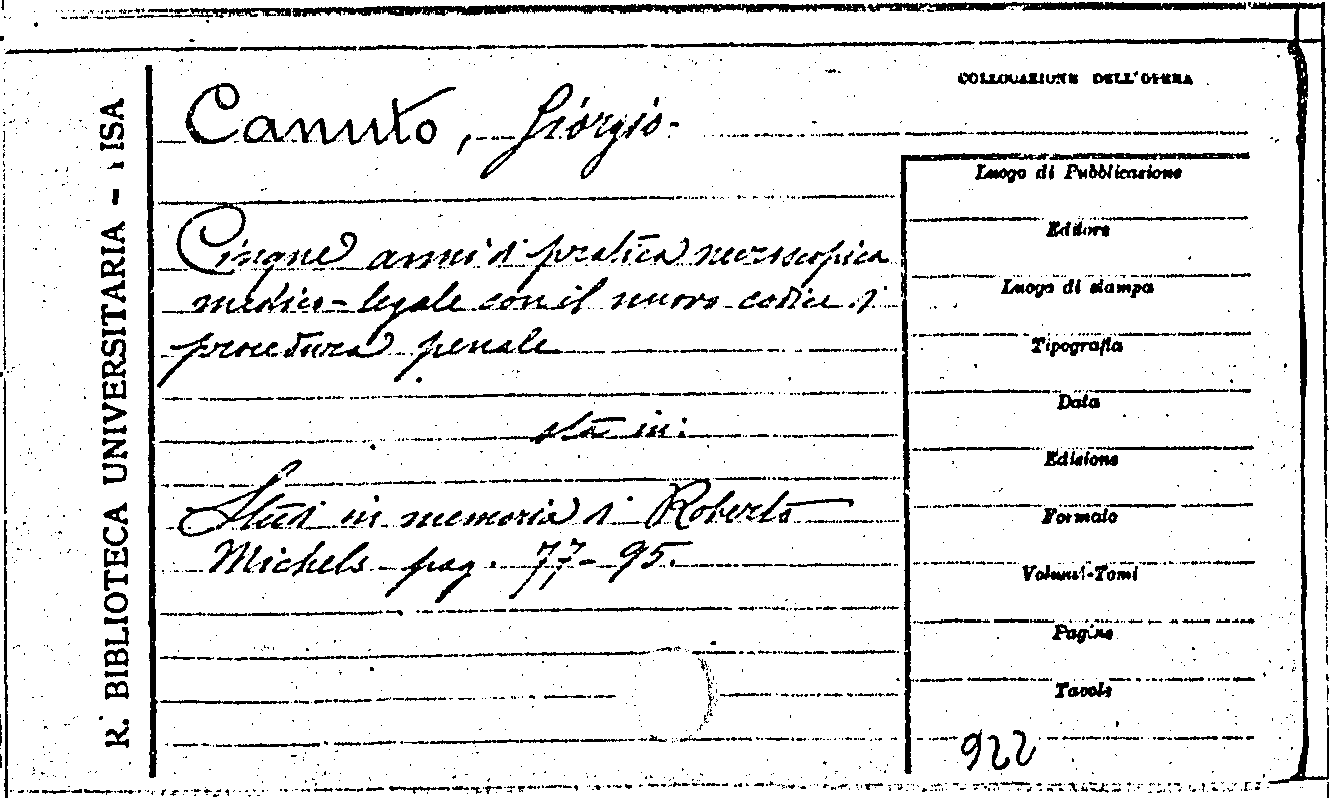 R. BIBLIOTECA UNIVERSITARIA - PISA
COLLOCAZIONE DELL'OPERA
Canuto, Giorgio.
Cinque anni di pratica necroscopica
medico-legale con il nuovo codice di
procedura penale
sta in:
Studi in memoria di Roberto
Michels pag. 77-95.
Luogo di Pubblicazione
Editore
Luogo di stampa
Tipografia
Data
Edizione
Formato
Volumi-Tomi
Pagine
Tavole
922